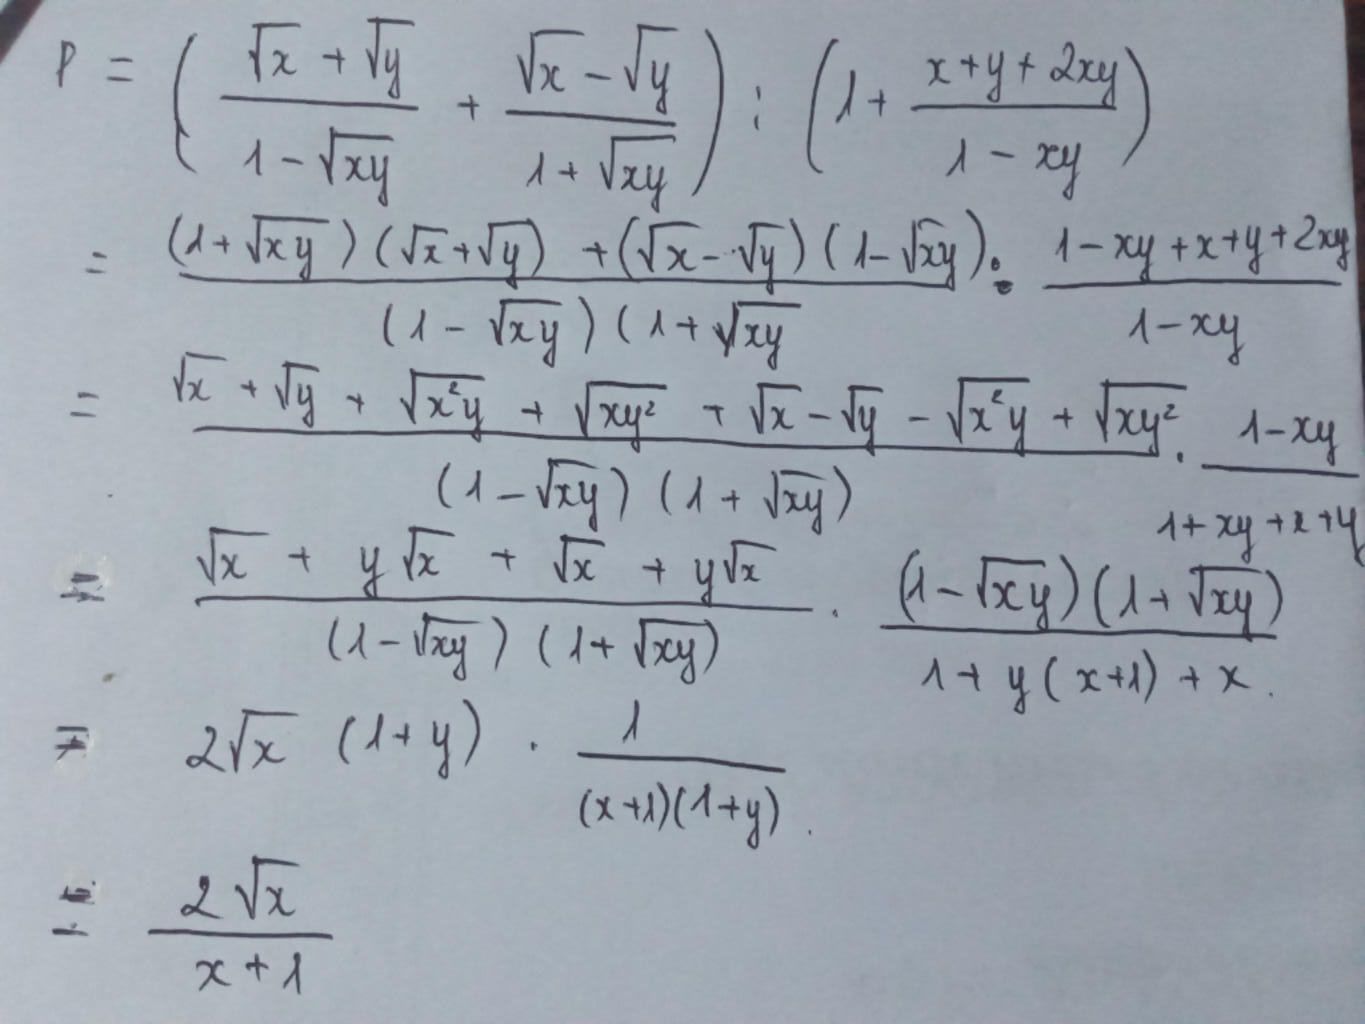 P = ( (√x + √y)/(1 - √xy) + (√x - √y)/(1 + √xy) ) : ( 1 + (x + y + 2xy)/(1 - xy) )
= ((1 + √xy)(√x + √y) + (√x - √y)(1 - √xy))/((1 - √xy)(1 + √xy) : (1 - xy + x + y + 2xy)/(1 - xy)
= (√x + √y + √x²y + √xy² + √x - √y - √x²y + √xy²)/((1 - √xy)(1 + √xy)) . (1 - xy)/(1 + xy + x + y)
= (√x + y√x + √x + y√x)/((1 - √xy)(1 + √xy)) . ((1 - √xy)(1 + √xy))/(1 + y(x+1) + x).
= 2√x (1 + y) . 1/((x+1)(1+y)).
= (2√x)/(x + 1)